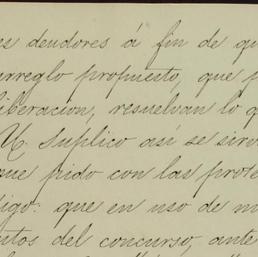 es deudores á fin de qu
arreglo propuesto, que p
liberacion, resuelvan lo q
V. suplico así se sirv
que pido con las prote
digo: que en uso de m
ntos del concurso, ante